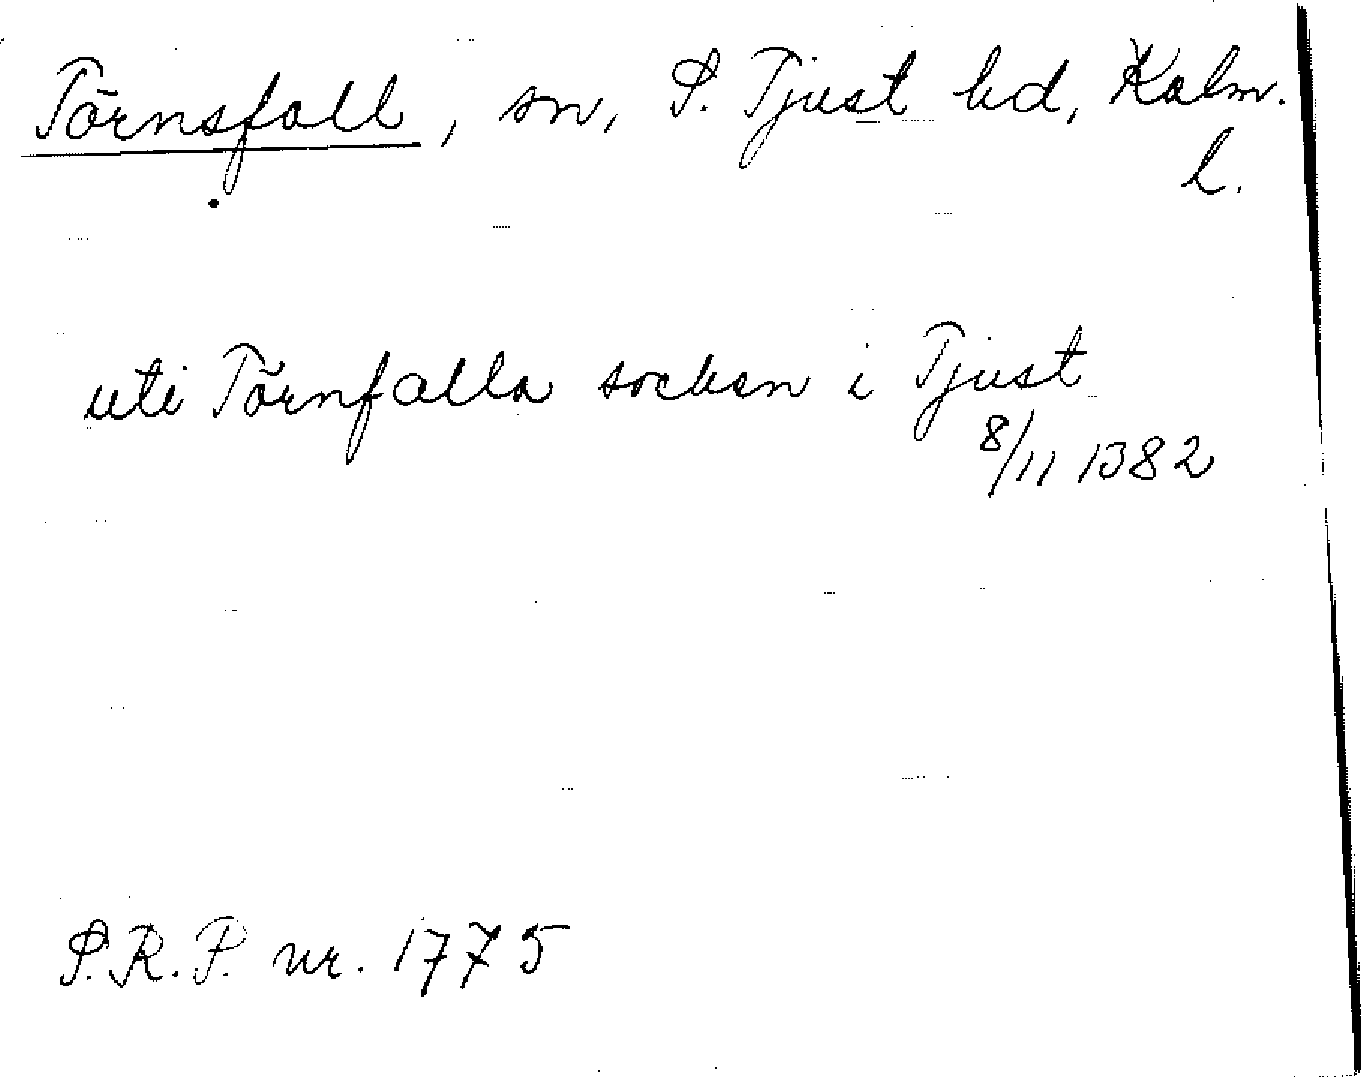 Törnsfall, sn, S. Tjust hd, Kalm.
l.
uti Törnfalla socken i Tjust
8/11 1382
S.R.P. nr. 1775